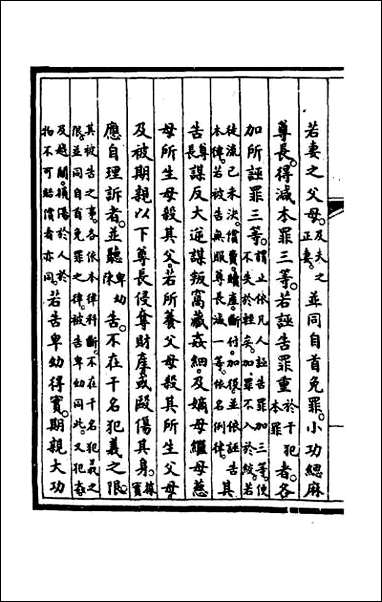 若妻之父母。及夫之正妻。並同自首免罪。小功緦麻
尊長。得減本罪三等。若誣告罪重於干犯本罪者。各
加所誣罪三等。謂止依凡人誣告罪加三等。便不失於輕矣。加罪不入於絞。若
徒流已未決。償費。贖產。斷付。加役並依誣告本律。若被告無服尊長減一等。依名例律。其
告尊長謀反大逆謀叛窩藏姦細。及嫡母繼母慈
母所生母殺其父。若所養父母殺其所生父母。
及被期親以下尊長侵奪財產。或毆傷其身。據實
應自理訴者。並聽卑幼陳告。不在干名犯義之限。
其被告之事。各依本律科斷。不在干名犯義之限。並同自首免罪之律。被告卑幼同此。又犯姦
及越關。損傷於人於物不可賠償者亦同。若告卑幼得實。期親大功